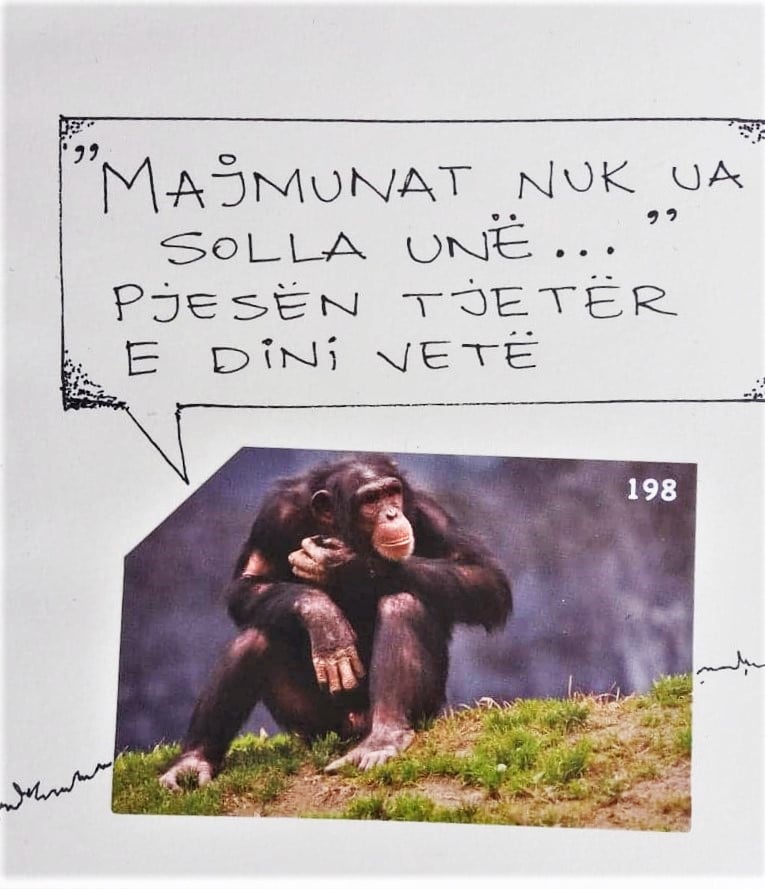 "MAJMUNAT NUK UA
SOLLA UNË..."
PJESËN TJETËR
E DINI VETË
198